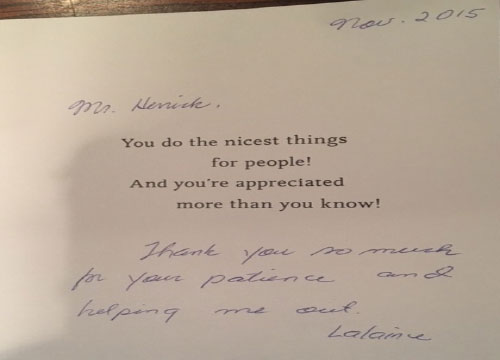 Nov. 2015
Mr. Herrick.
You do the nicest things
for people!
And you're appreciated
more than you know!
Thank you so much
for your patience and
helping me out.
Lalaine